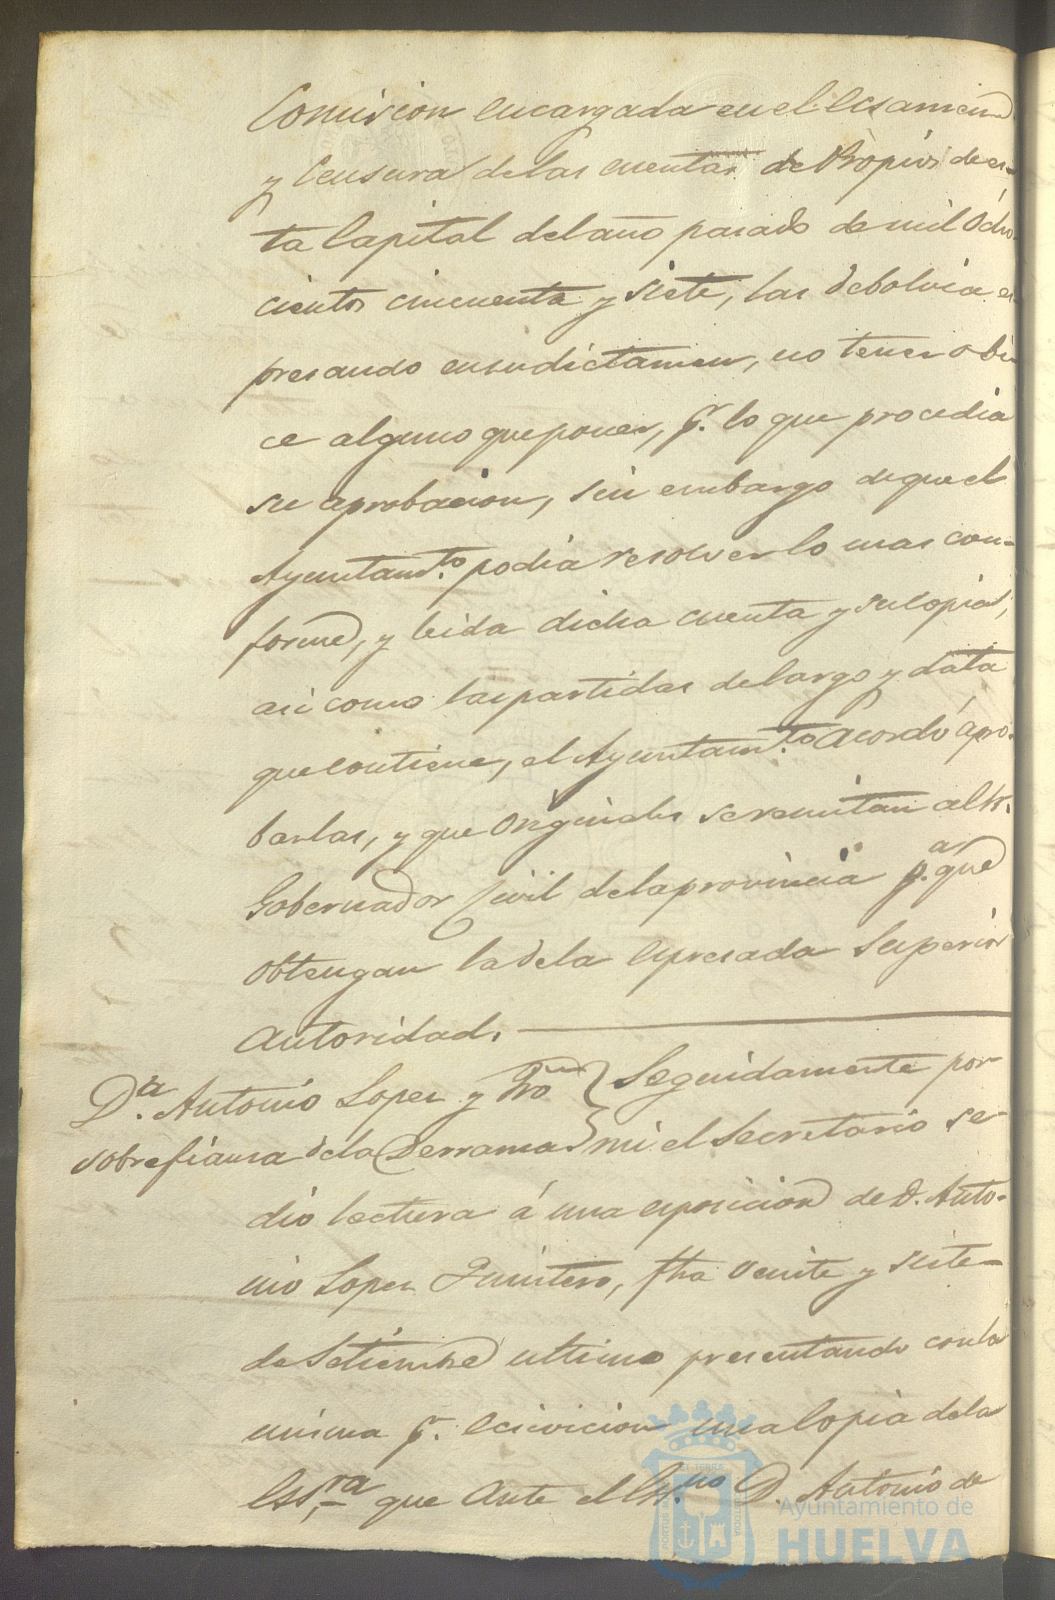 Comision encargada en el ecsamen
y Censura de las cuentas de Propios de es-
ta Capital del año pasado de mil Ocho-
cientos cincuenta y siete, las debolvia es
presando en su dictamen, no tener obi
ce alguno que poner, p.r lo que procedia
su aprobacion, sin embargo de que el
Ayuntam.to podia resolver lo mas con-
forme, y leida dicha cuenta y su copia,
asi como las partidas de Cargo y data
que contiene, el Ayuntam.to acordó apro-
barlas, y que originales se remitan al Sr.
Gobernador Civil de la provincia p.a que
obtengan la de la espresada Superior
autoridad.
D.n Antonio Lopez y
sobre fianza de la Derrama
Seguidamente por
mi el Secretario se
dio lectura á una esposicion de D. Anto-
nio Lopez Quintero, fha veinte y siete
de Setiembre ultimo presentando con la
misma p.r ecsivicion una Copia de la
Ess.ra que ante el Ess.no D. Antonio de
Ayuntamiento de
HUELVA